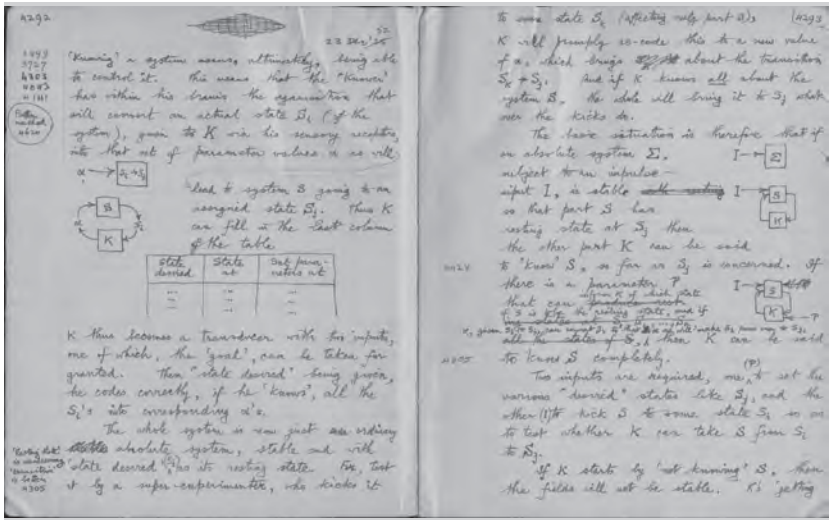 4292
52
23 Dec '52
'Knowing' a system means, ultimately, being able
to control it. This means that the 'Knower'
has within his brain the organisation that
will convert an actual state Si (of the
system), given to K via his sensory receptors,
into that set of parameter values α as will
α → Si → Sj
lead to system S going to an
assigned state Sj. Thus K
can fill in the last column
of the table
S
α
Si
K
State desired
State at
Set parameters at
...
...
...
...
...
...
...
...
...
K thus becomes a transducer with two inputs,
one of which, the 'goal', can be taken for
granted. Then "state desired" being given,
he codes correctly, if he 'knows', all the
Si's into corresponding α's.
The whole system is now just an ordinary
absolute system, stable and with
'state desired' as its resting state. For, test
it by a super-experimenter, who kicks it
4305
4293
to some state Sk (affecting only part S);
K will promptly re-code this to a new value
of α, which brings about the transition
Sk → Sj. And if K knows all about the
system S, the whole will bring it to Sj what
ever the kicks do.
The basic situation is therefore that if
an absolute system Σ,
subject to an impulse-
input I, is stable
so that part S has
resting state at Sj then
the other part K can be said
I → Σ
I → S
K
to 'know' S, so far as Sj is concerned. If
there is a parameter P
that can inform K of which state
of S is to be the resting state, and if
all the states of S, then K can be said
to know S completely.
I → S
K
P
Two inputs are required, one (P) to set the
various "desired" states like Sj, and the
other (I) to kick S to some state Si so as
to test whether K can take S from Si
to Sj.
If K starts by 'not knowing' S, then
the fields will not be stable. K's 'getting